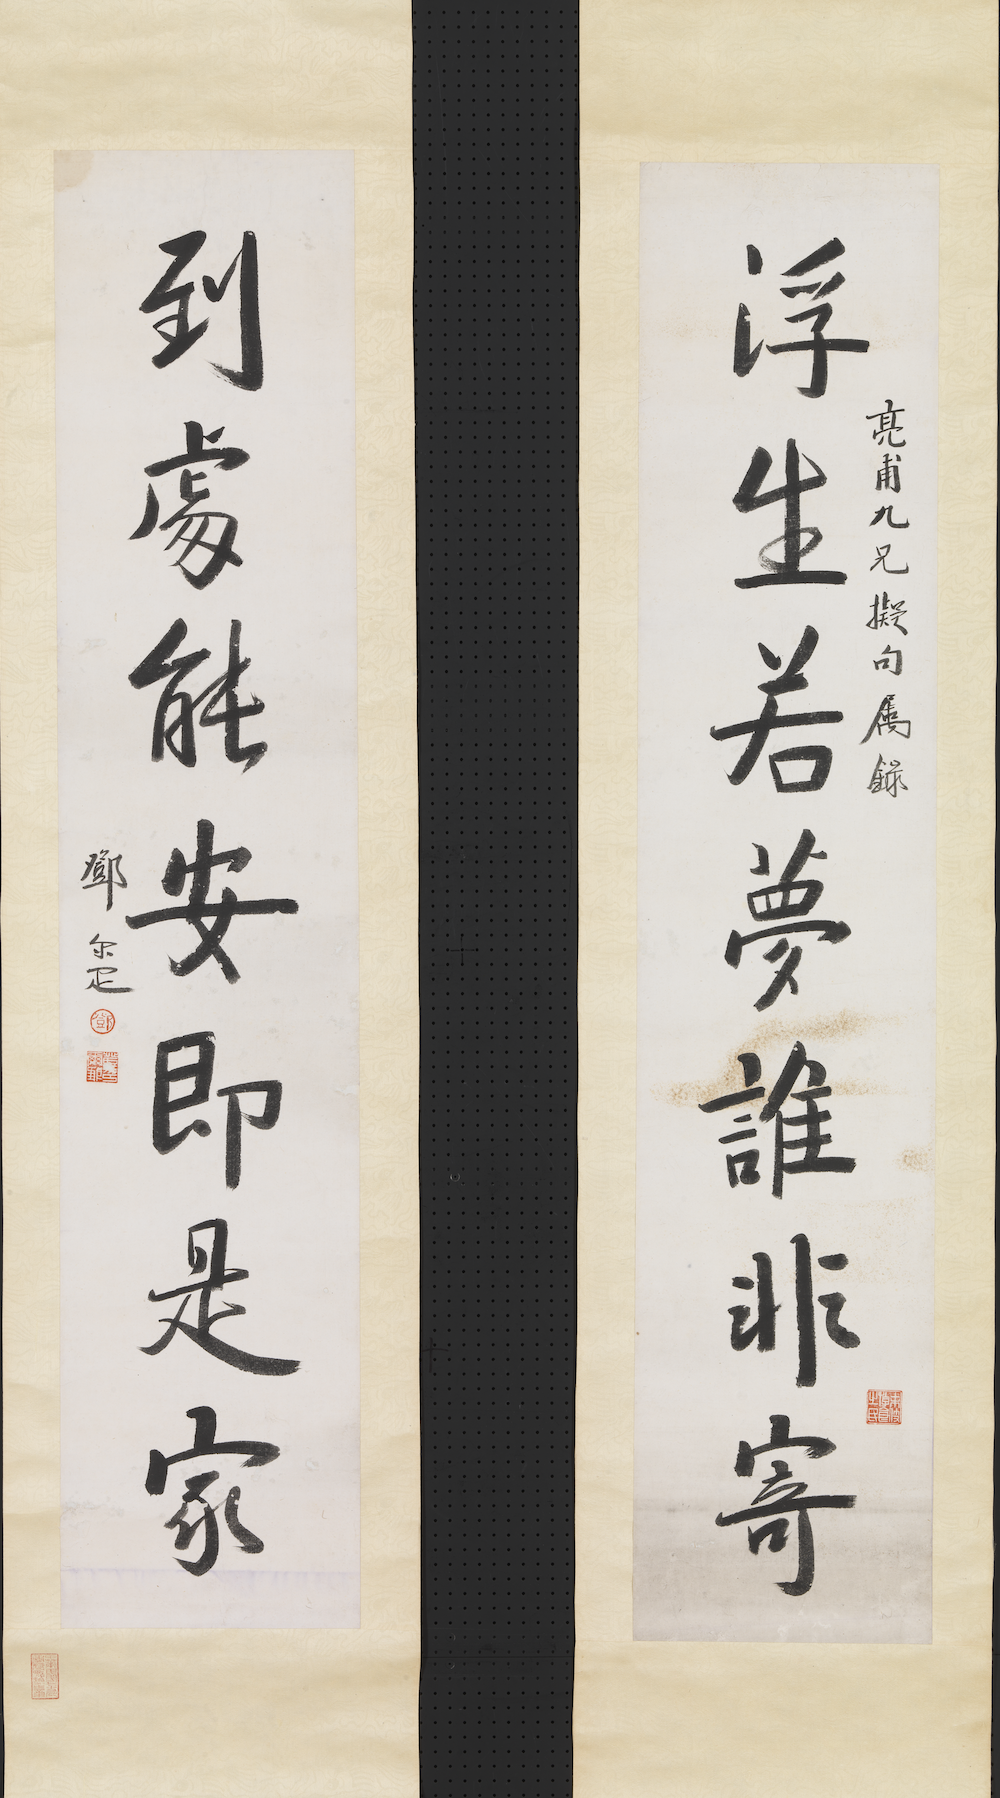 亮甫九兄擬句属錄
浮生若夢誰非寄
到處能安即是家
鄧尔疋
鄧